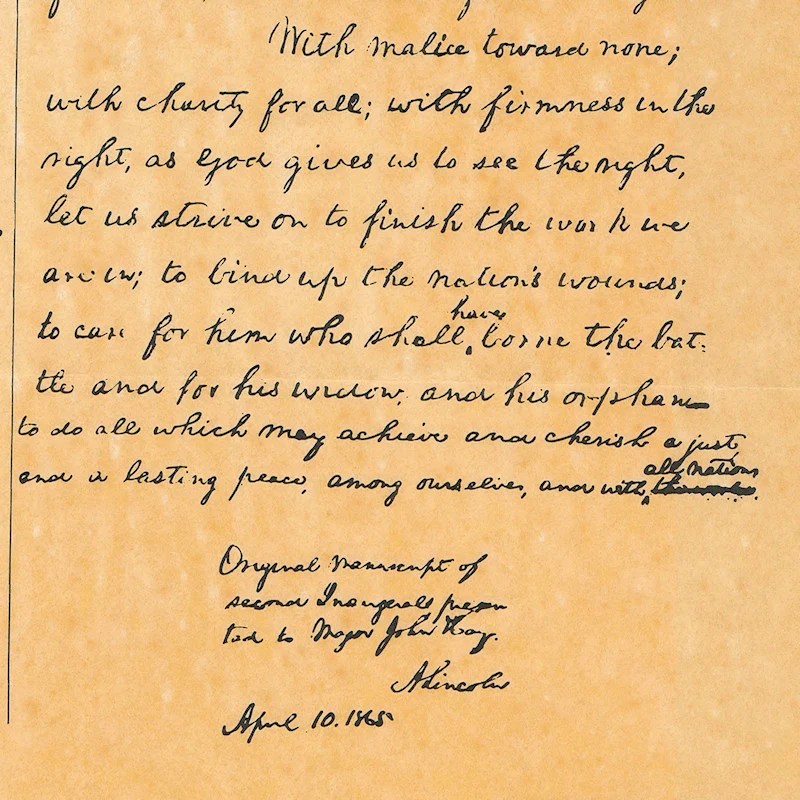 With malice toward none;
with charity for all; with firmness in the
right, as God gives us to see the right,
let us strive on to finish the work we
are in; to bind up the nation's wounds;
have
to care for him who shall borne the bat-
tle and for his widow, and his orphan—
to do all which may achieve and cherish a just,
all nations
and a lasting peace, among ourselves, and with
Original manuscript of
second Inaugeral presen-
ted to Major John Hay.
A. Lincoln
April 10. 1865